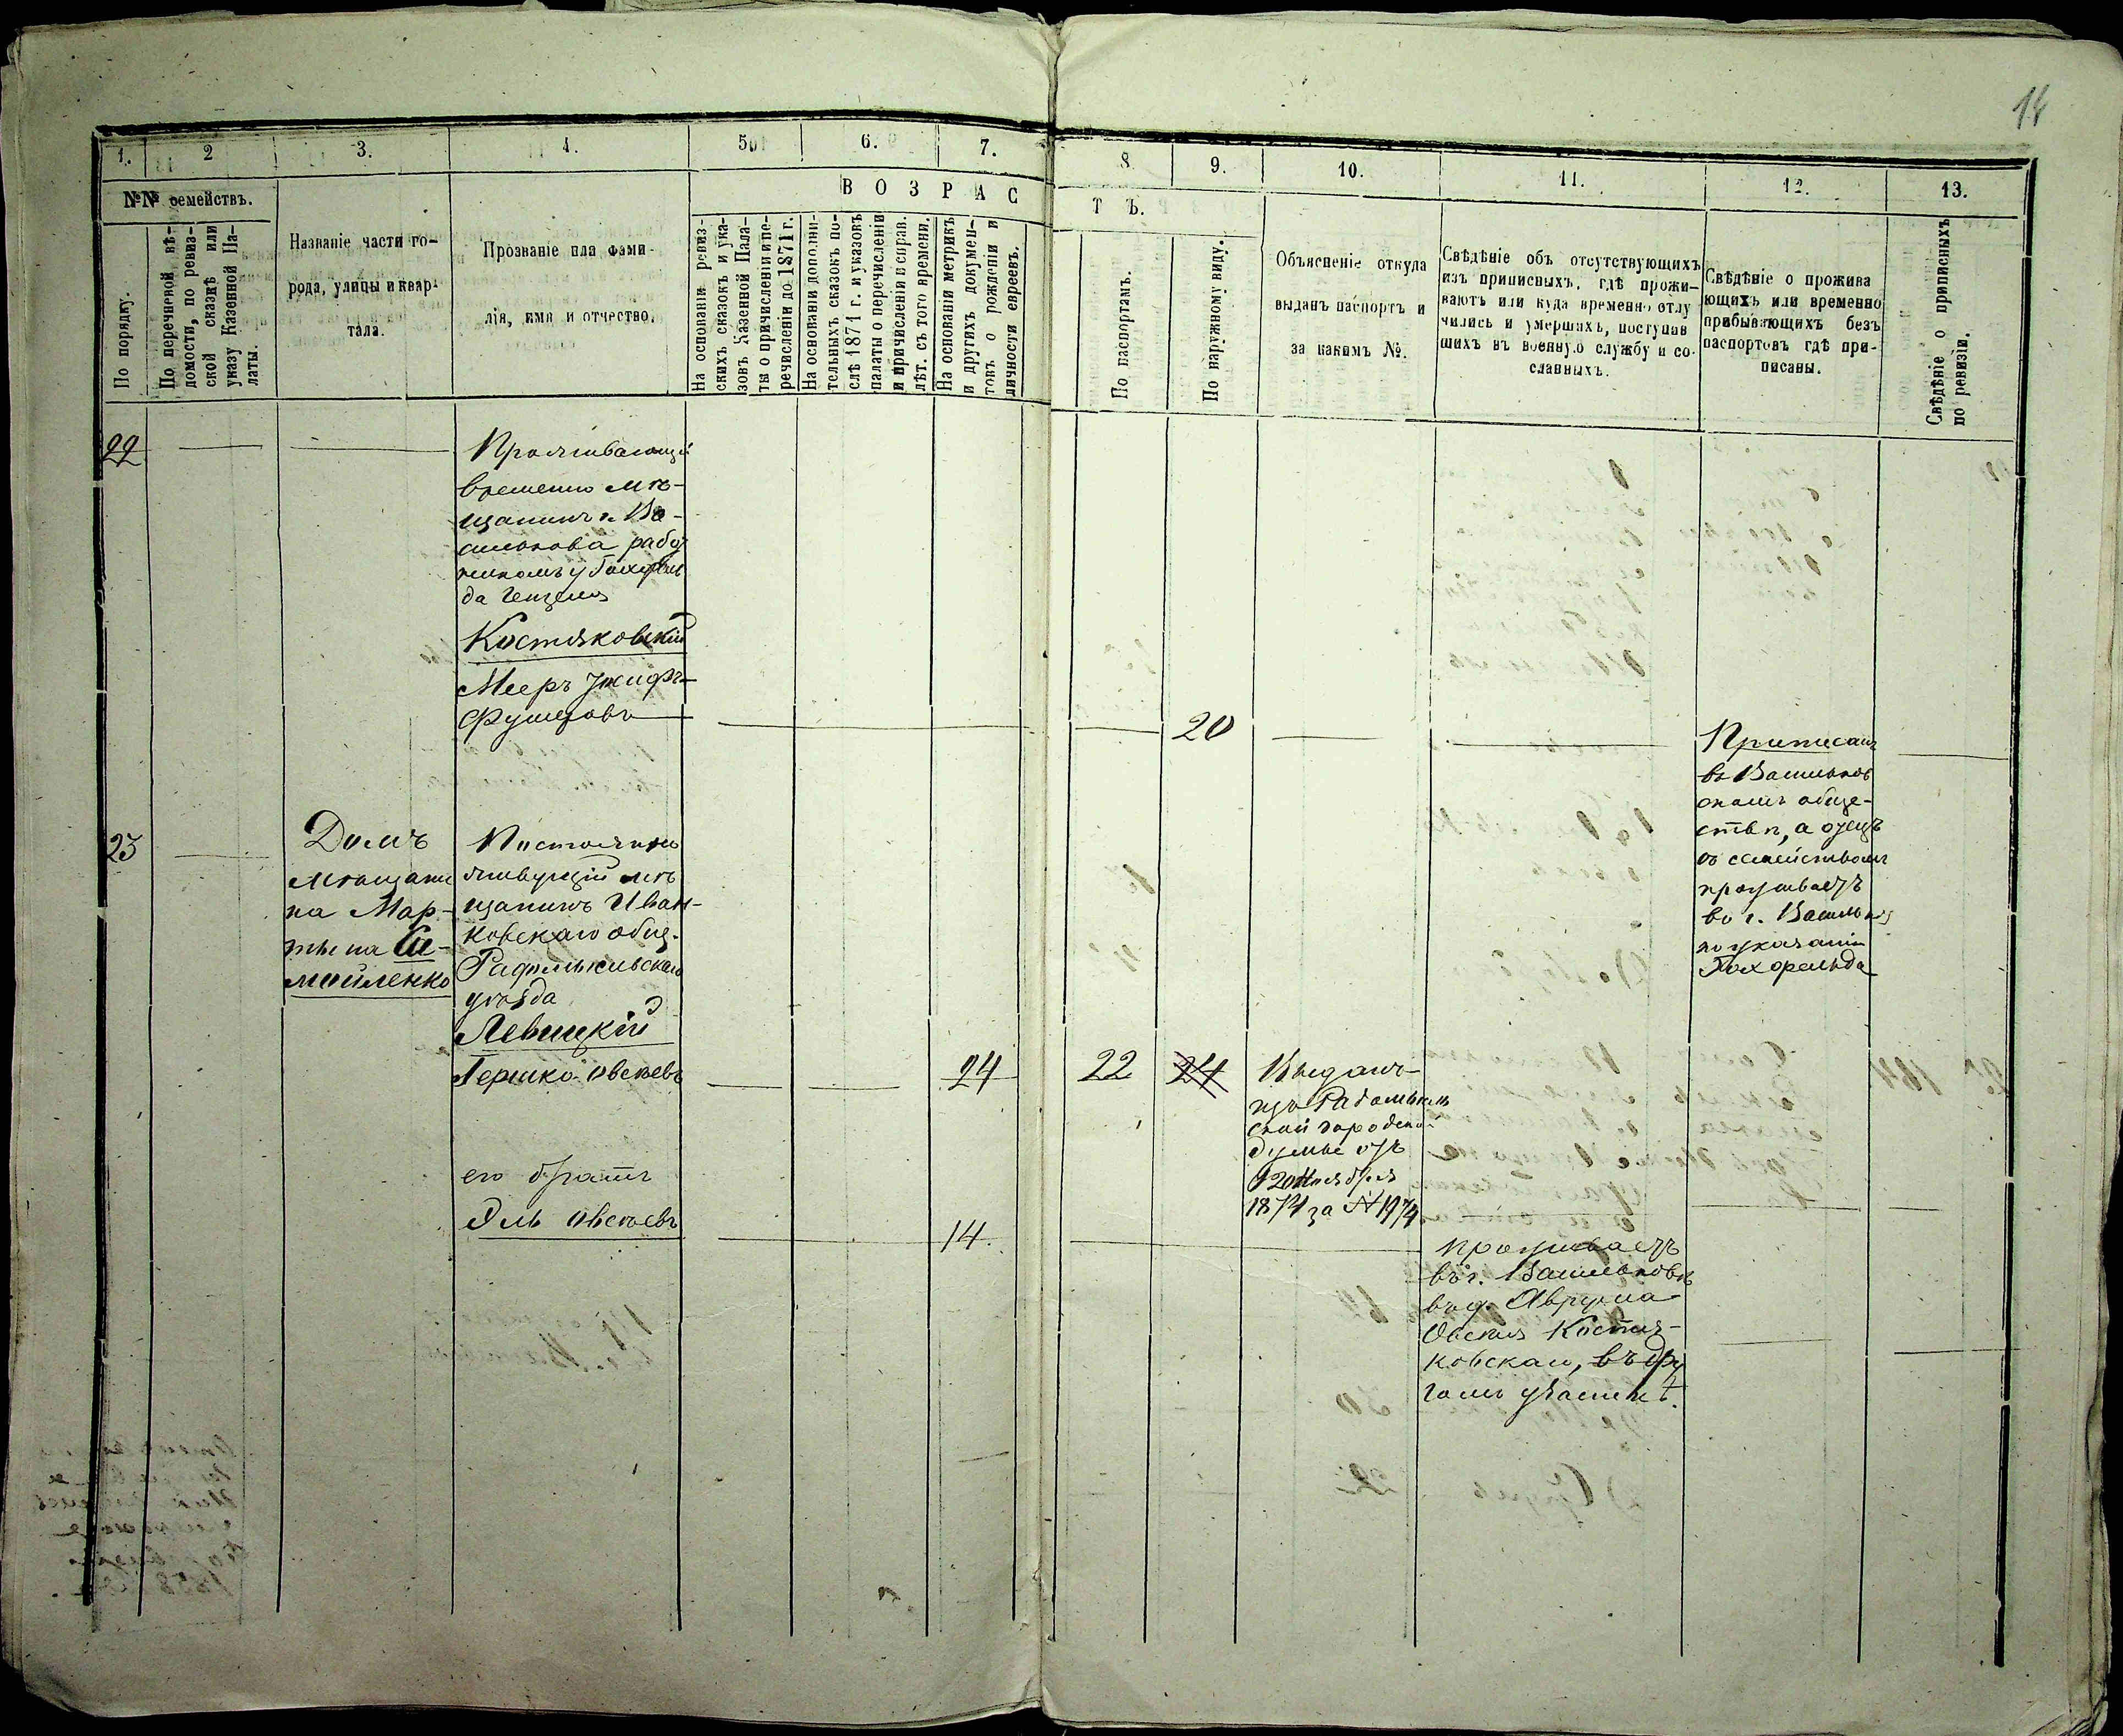 14
1. 2 3. 4. 5 6. 7.
8 9. 10. 11. 12. 13.
№№ семействъ.
По порядку.
По перечневой вѣ-
домости, по ревиз-
ской сказкѣ или
указу Казенной Па-
латы.
Названіе части го-
рода, улицы и квар-
тала.
Прозваніе или фами-
лія, имя и отчество.
ВОЗРАС
ТЪ.
На основаніи ревиз-
скихъ сказокъ и ука-
зовъ Казенной Пала-
ты о причисленіи и пе-
речисленіи до 1871 г.
На основаніи дополни-
тельныхъ сказокъ по-
слѣ 1871 г. и указовъ
палаты о перечисленіи
и причисленіи и справ.
лѣт. съ того времени.
На основаніи метрикъ
и другихъ докумен-
товъ о рожденіи и
личности евреевъ.
По паспортамъ.
По наружному виду.
Объясненіе откуда
выданъ паспортъ и
за какимъ №.
Свѣдѣніе объ отсутствующихъ
изъ приписныхъ, гдѣ прожи-
ваютъ или куда временно отлу
чились и умершихъ, поступив
шихъ въ военную службу и со-
сланныхъ.
Свѣдѣніе о прожива
ющихъ или временно
прибывающихъ безъ
паспортовъ гдѣ при-
писаны.
Свѣдѣніе о приписныхъ
по ревизіи.
22
Проживающій
временно мѣ-
щанинъ г. Ва-
силькова рабо
никомъ у
да
Костяковскій
Мееръ
20
Приписанъ
въ Васильков
скомъ обще-
ствѣ, а отецъ
съ семействомъ
проживаетъ
въ г. Васильк
по указанію
23
Домъ
мѣщани
на Мар-
тына
мойленко
Постоянно
живущій мѣ
щанинъ Иван-
ковскаго общ.
Радомысльскаго
уѣзда
Левицкій
Гершко Овсѣевъ
24
22
24
Выданъ
изъ Радомысль
ской городской
думы отъ
20 Ноября
1874 за № 1974
его братъ
Эль Овсѣевъ
14.
проживаетъ
въ г. Васильковѣ
въ д. Аврума
Овсѣя Костя-
ковскаго, въ дру
гомъ участкѣ.